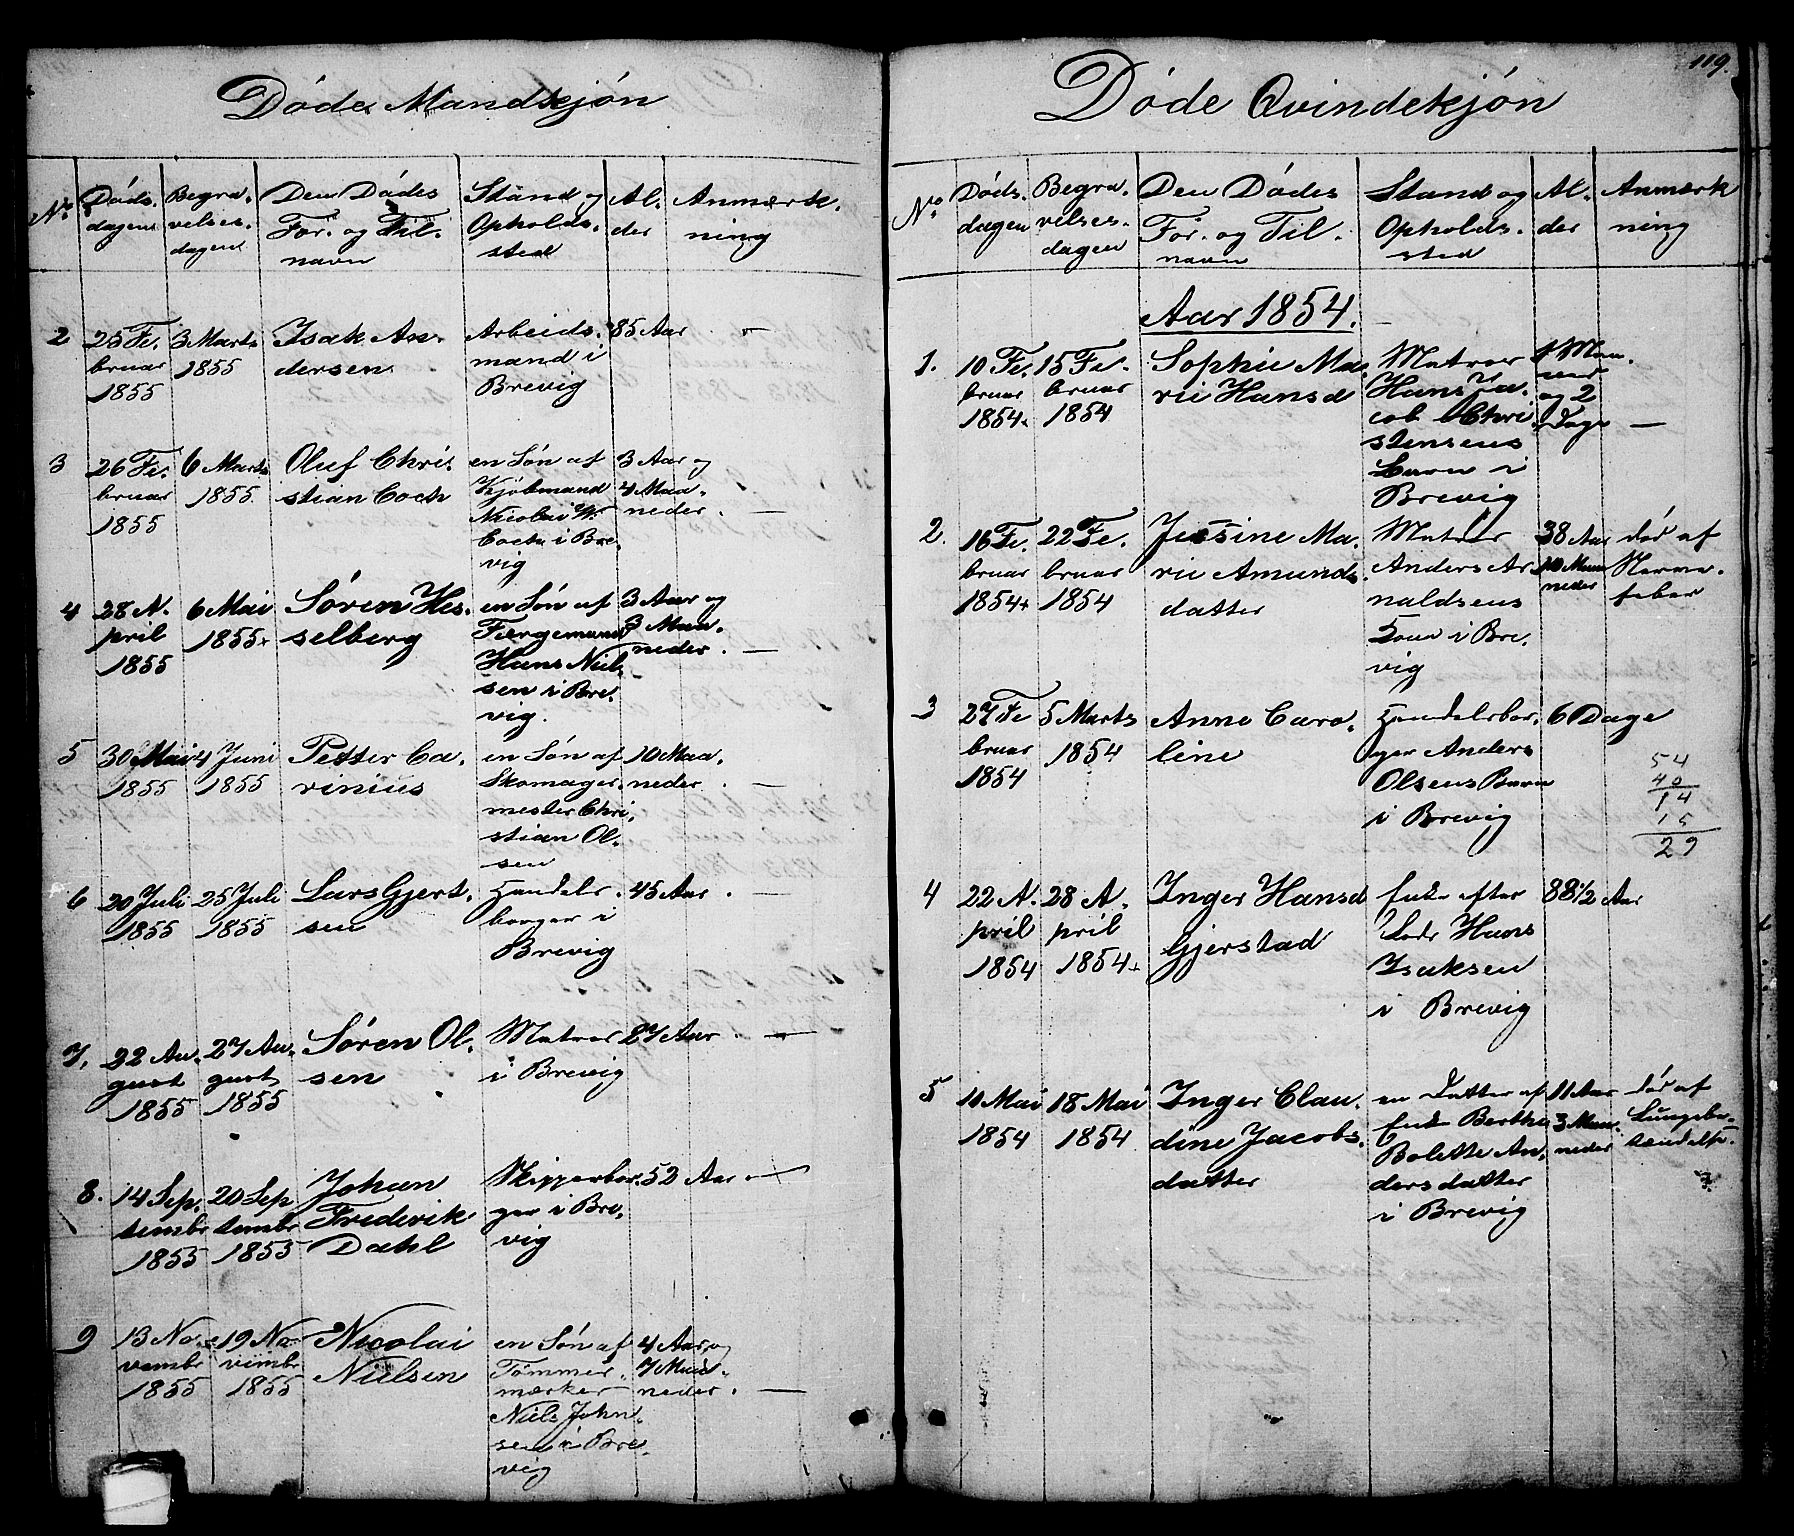 Døde Mandkjøn
No
Døds.
dagen
Begra.
velses.
dagen
Den Dødes
For. og Til.
navn
Stand og
Opholds.
sted
Al.
der
Anmærk.
ning
2
25 Fe.
bruar
1855
3 Marts
1855
Isak An.
dersen
Arbeids.
mand i
Brevig
85 Aar
3
26 Fe.
bruar
1855
6 Marts
1855
Oluf Chri.
stian Coch
en Søn af
Kjøbmand
Nicolai W.
Coch i Bre.
vig
3 Aar og
4 Maa.
neder
4
28 A.
pril
1855
6 Mai
1855
Søren Hes.
selberg
en Søn af
Færgemand
Hans Niel.
sen i Bre.
vig.
3 Aar og
Maa.
neder
5
30 Mai
1855
4 Juni
1855
Petter Ca.
rinius
en Søn af
Skomager.
mester Chri.
stian Ol.
sen
10 Maa.
neder
6
20 Juli
1855
25 Juli
1855
Lars Gjert.
sen
Handels.
borger i
Brevig
45 Aar
7.
22 Au.
gust
1855
27 Au.
gust
1855
Søren Ol.
sen
Matros
i Brevig
27 Aar
8.
14 Sep.
tembr
1855
20 Sep
tembr
1855
Johan
Frederik
Dahl
Skipperbor.
ger i Bre.
vig
52 Aar
9
13 No.
vembr
1855
19 No
vembr
1855
Nicolai
Nielsen
en Søn af
Tømmer.
mærker
Niels John.
sen i Bre.
vig
4 Aar og
7 Maa.
neder
119.
Døde Qvindekjøn
No
Døds.
dagen
Begra.
velses.
dagen
Den Dødes
For. og Til.
navn
Stand og
Opholds.
sted
Al.
der
Anmærk
ning
Aar 1854.
1.
10 Fe.
bruar
1854
15 Fe.
bruar
1854
Sophie Ma.
rie Hansd
Matros
Hans Ja.
cob Chri
stensens
Barn i
Brevig
og 2
Dage
2.
16 Fe.
bruar
1854
22 Fe.
bruar
1854
Jessine Ma.
rie Amunds
datter
Matros
Anders Ar
naldsens
Kone i Bre.
vig
38 Aar
10 Maa
neder
død af
Nerve.
feber
3
27 Fe
bruar
1854
5 Marts
1854
Anne Caro.
line
Handelsbor.
ger Anders
Olsens Barn
i Brevig
6 Dage
54
40
14
15
29
4
22 A.
pril
1854
28 A.
pril
1854
Inger Hansd
Gjerstad
Enke efter
Lods Hans
Isaksen
i Brevig
88 1/2 Aar
5
11 Mai
1854
18 Mai
1854
Inger Clau.
dine Jacobs.
datter
en Datter af
Enke Berthe
Bolette An.
dersdatter
i Brevig
11 Aar
3 Maa.
neder
død af
Lungebe.
tændelse.